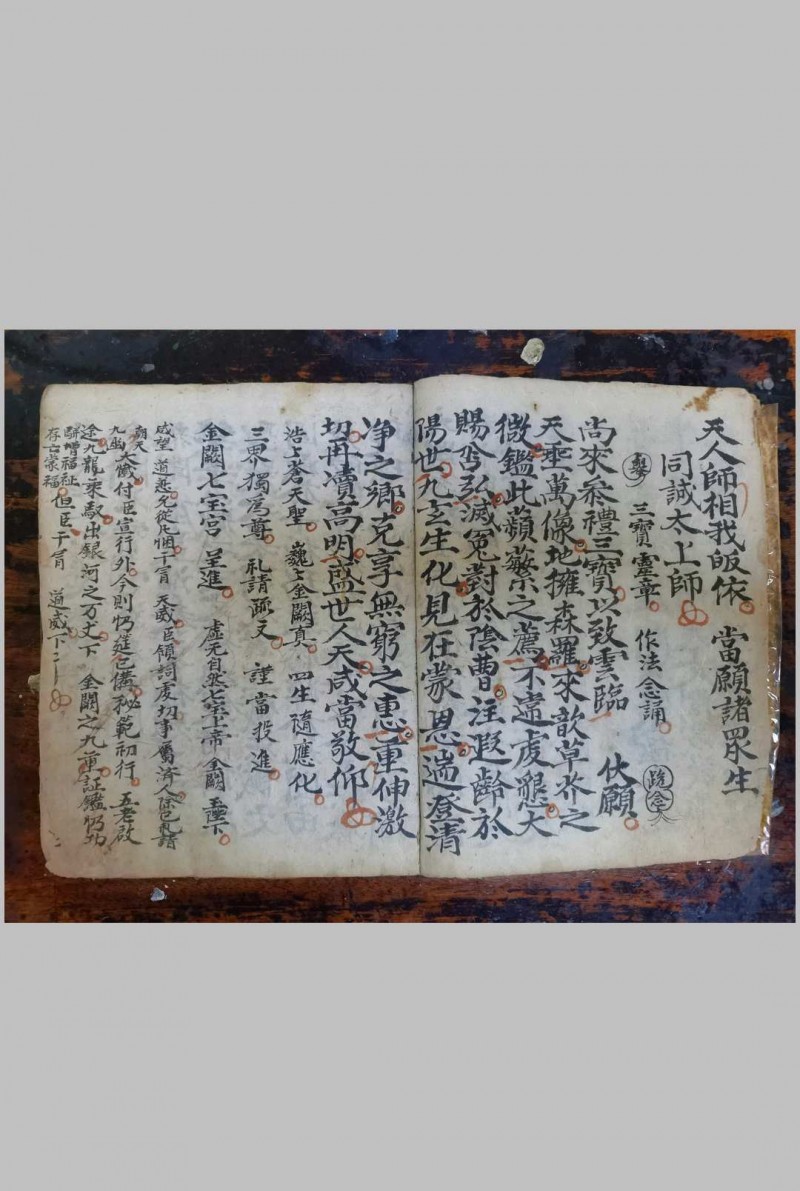 天人師相我皈依 當願諸眾生
同誠太上師
舉 三寶靈章 作法念誦
尚來叅禮三寶以致雲臨 伏願
天垂萬像地擁森羅來歆草芥之
微鑑此蘋蘩之薦不違虔懇大
賜咎弘滅冤對於陰曹注遐齡於
陽世九玄生化見在蒙恩遄登清
净之鄉克享無窮之惠重伸激
切再瀆高明盛世人天咸當敬仰
浩上蒼天聖 巍上金闕真 四生隨應化
三界獨為尊 礼請疏文 謹當投進
金闕七宝宮 呈進 虛无自然七宝上帝 金闕玉陛下
咸望 道慈允從凡悃干冒 天威臣領詞虔切事屬済人除已礼請
朝天
九幽大懺付臣宣行外今則仍筵已俻秘範初行 五老啟
途九龍乘馭出銀河之万丈下 金闕之九重証鑑仍功
駢增福祉
存亡蒙福 但臣干冒 道威下